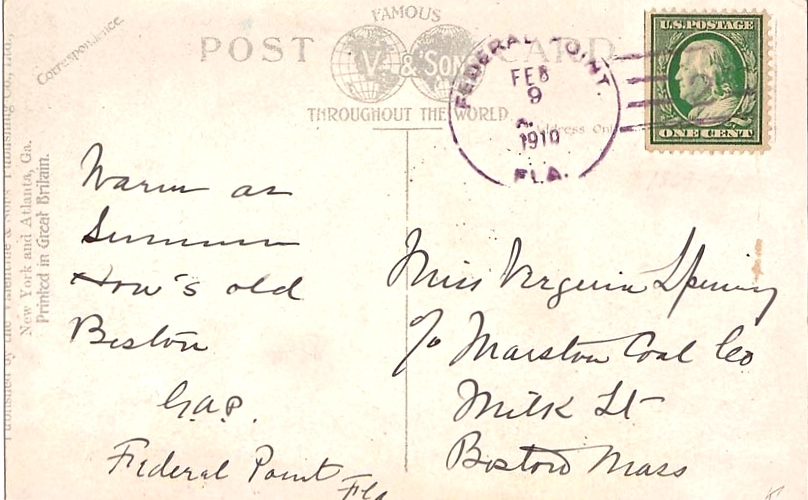 Correspondence.
POST CARD
FAMOUS
V & SONS
THROUGHOUT THE WORLD
Address Only
FEDERAL POINT.
FEB
9
A.
1910
FLA.
U.S. POSTAGE
ONE CENT
Published by the Valentine & Sons' Publishing Co., Ltd.,
New York and Atlanta, Ga.
Printed in Great Britain.
Warm as
Summer
How's old
Boston
G.A.P.
Federal Point
Fla
Miss Virginia
c/o Marston Coal Co
Milk St
Boston Mass